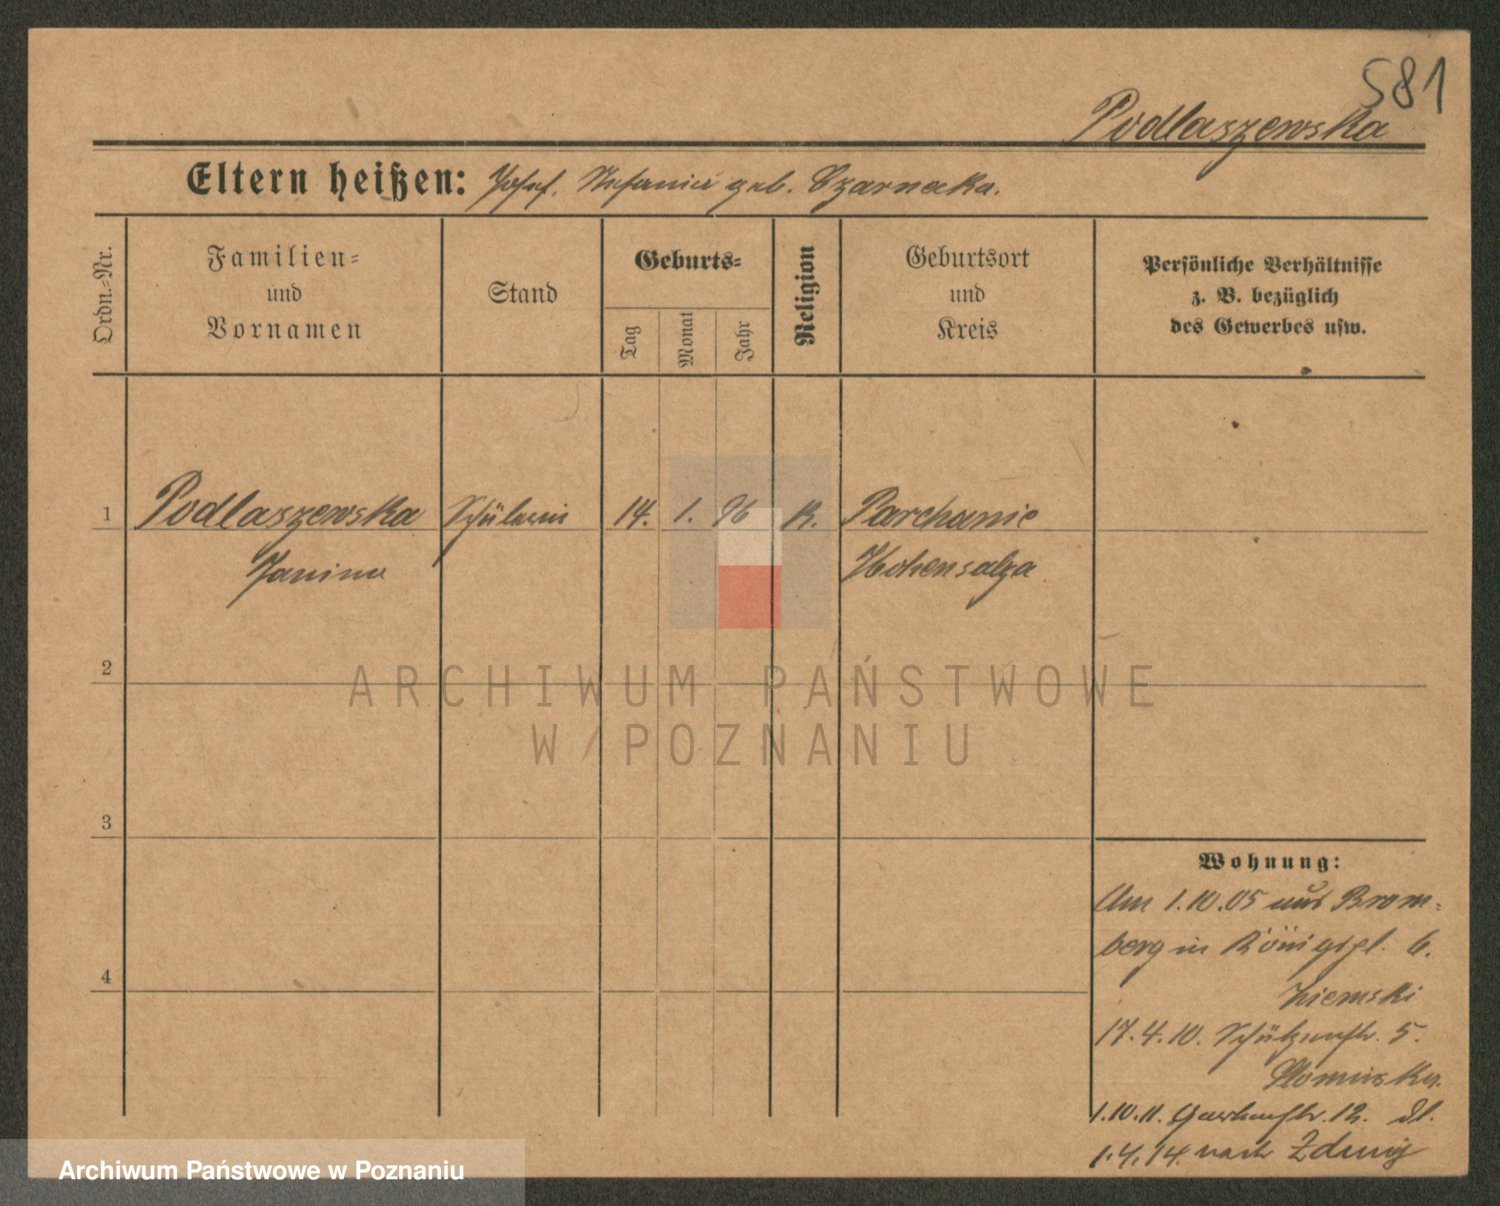 581
Podlaszewska
Eltern heißen: Josef, Stefania geb. Czarnecka.
Ordn.-Nr.
Familien-
und
Vornamen
Stand
Geburts-
Tag
Monat
Jahr
Religion
Geburtsort
und
Kreis
Persönliche Verhältnisse
z. B. bezüglich
des Gewerbes usw.
1 Podlaszewska Schülerin 14. 1. 96 K. Parchanie
Janina Hohensalza
2
3
4
ARCHIWUM PAŃSTWOWE
W POZNANIU
Wohnung:
Am 1.10.05 aus Brom-
berg in Königspl. 6.
Ziemski
17.4.10. Schützenstr. 5.
Slominska.
1.10.11. Gartenstr. 12.
1.4.14. nach Zduny
Archiwum Państwowe w Poznaniu